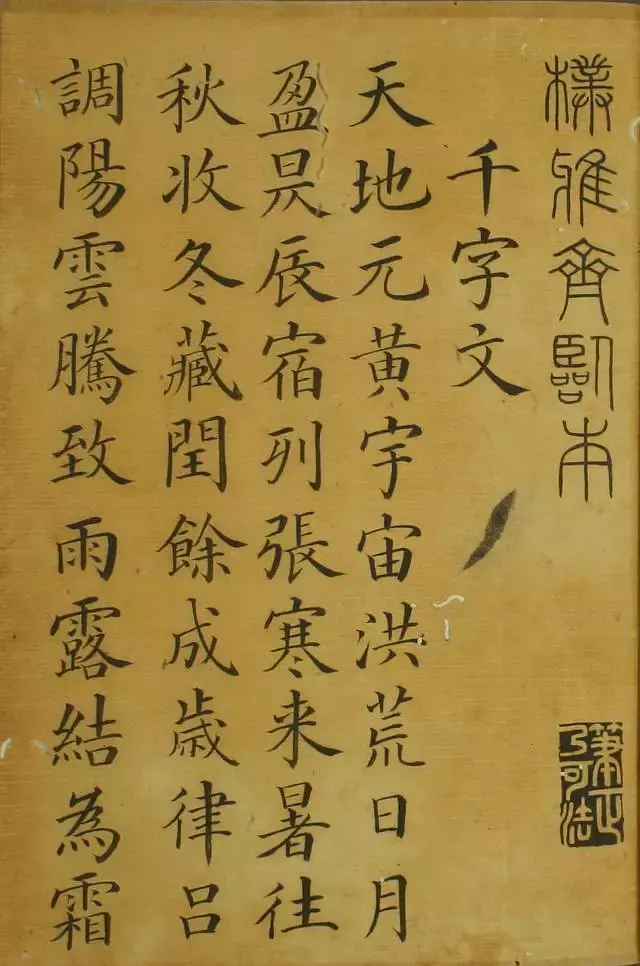 樸雅齋臨本
筆正乃可法
千字文
天地元黃宇宙洪荒日月
盈昃辰宿列張寒来暑往
秋收冬藏閏餘成歲律吕
調陽雲騰致雨露結為霜